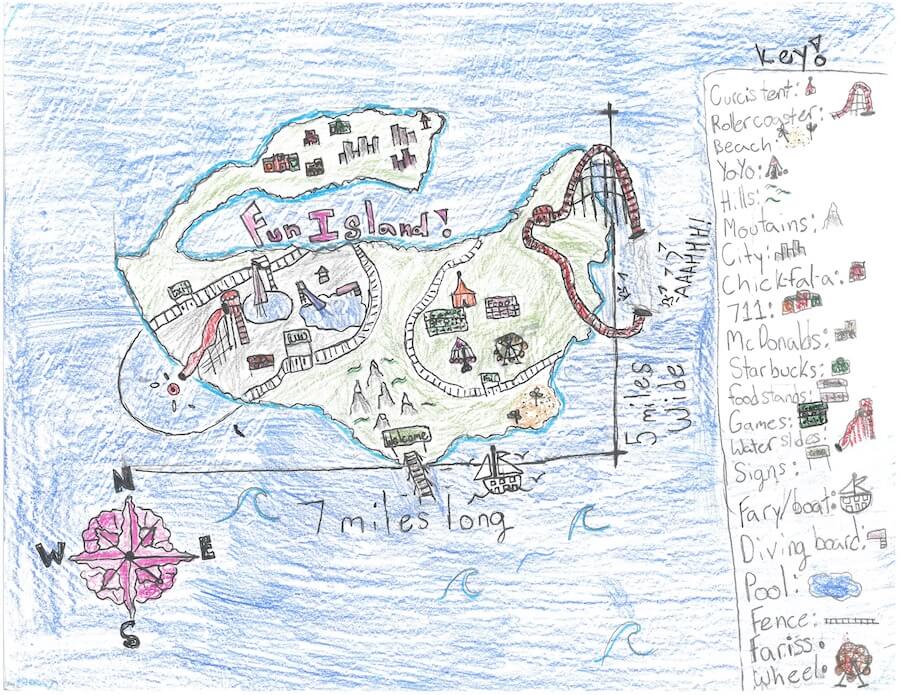 Key!
Curcis tent:
Rollercoaster:
Beach:
YoYo:
Hills:
Moutains:
City:
Chickfala:
711:
McDonalds:
Starbucks:
foodstands:
Games:
Water sides:
Signs:
Fary/boat:
Diving board:
Pool:
Fence:
Fariss
Wheel:
Fun Island!
AAAHHH!
Exit
Welcome
5 miles
Wide
7 miles long
N
W
E
S